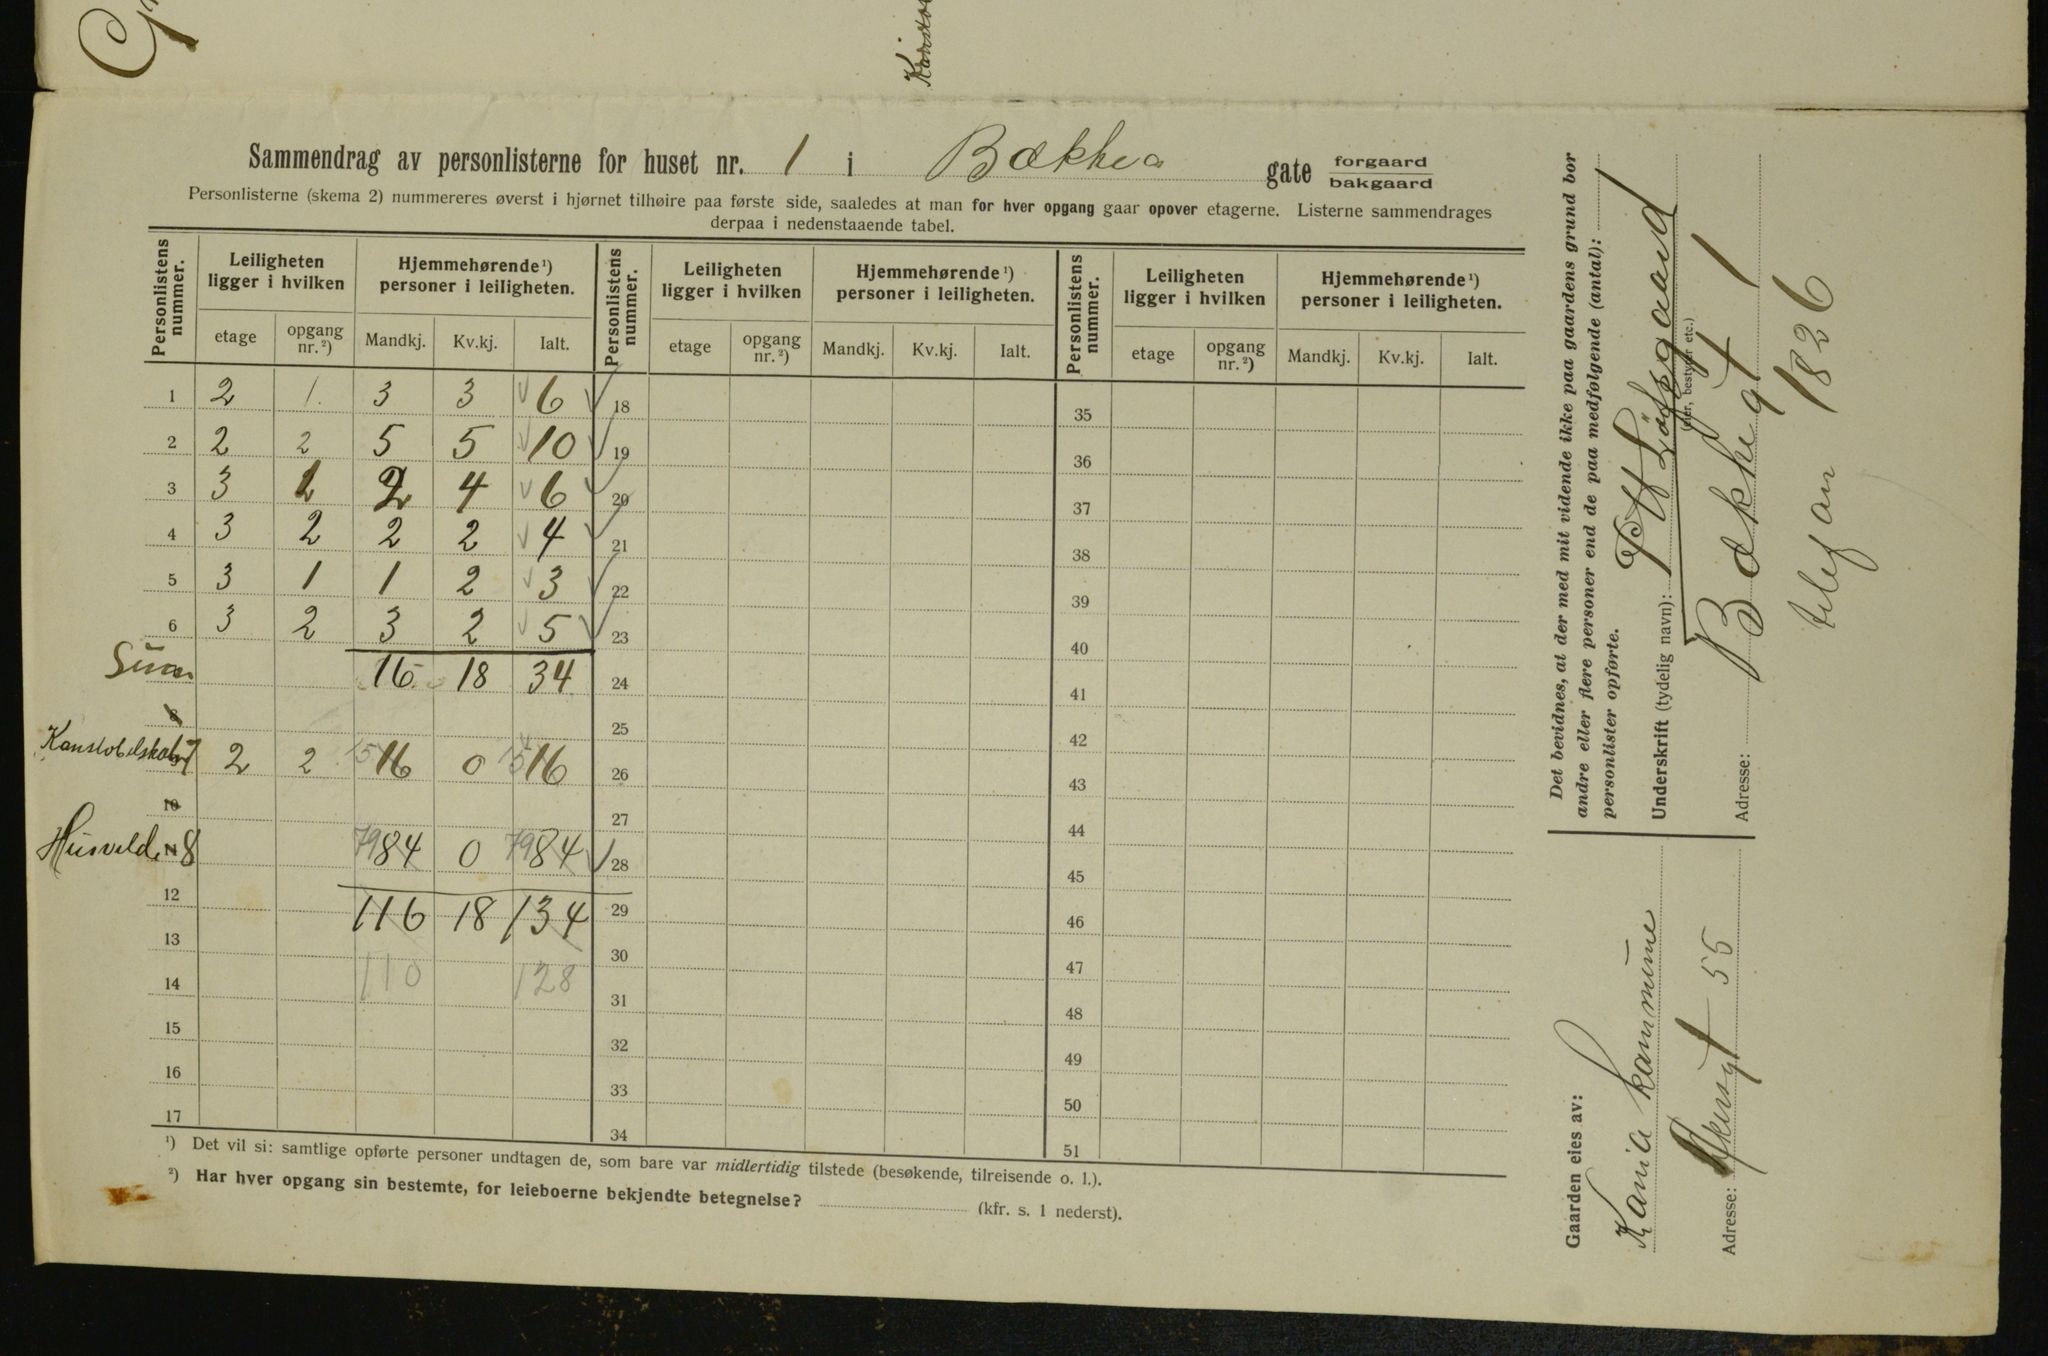 Sammendrag av personlisterne for huset nr. 1 i Bækkea gate forgaard bakgaard
Personlisterne (skema 2) nummereres øverst i hjørnet tilhøire paa første side, saaledes at man for hver opgang gaar opover etagerne. Listerne sammendrages
derpaa i nedenstaaende tabel.
Personlistens nummer. Leiligheten ligger i hvilken Hjemmehørende ¹) personer i leiligheten. Personlistens nummer. Leiligheten ligger i hvilken Hjemmehørende ¹) personer i leiligheten. Personlistens nummer. Leiligheten ligger i hvilken Hjemmehørende ¹) personer i leiligheten.
etage opgang nr. ²) Mandkj. Kv.kj. Ialt. etage opgang nr. ²) Mandkj. Kv.kj. Ialt. etage opgang nr. ²) Mandkj. Kv.kj. Ialt.
1 2 1. 3 3 6 18 35
2 2 2 5 5 10 19 36
3 3 1 2 4 6 20 37
4 3 2 2 2 4 21 38
5 3 1 1 2 3 22 39
6 3 2 3 2 5 23 40
16 18 34 24 41
8 25 42
7 2 2 15 16 0 15 16 26 43
10 27 44
8 79 84 0 79 84 28 45
12 116 18 134 29 46
13 110 128 30 47
14 31 48
15 32 49
16 33 50
17 34 51
¹) Det vil si: samtlige opførte personer undtagen de, som bare var midlertidig tilstede (besøkende, tilreisende o. l.).
²) Har hver opgang sin bestemte, for leieboerne bekjendte betegnelse? (kfr. s. 1 nederst).
Det bevidnes, at der med mit vidende ikke paa gaardens grund bor
andre eller flere personer end de paa medfølgende (antal):
personlister opførte.
Underskrift (tydelig navn):
(eier, bestyrer etc.)
Adresse: Bækkegt 1
telefon 1826
Gaarden eies av:
Kania kommune
Adresse: Akersgt 55